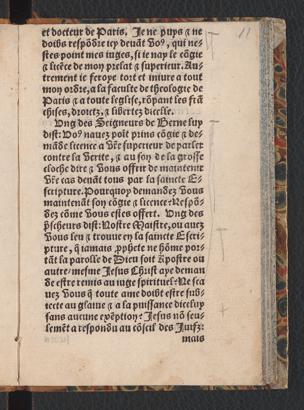 11
et docteur de Paris. Je ne puys ⁊ ne
doibs respõdre icy deuãt Võ9, qui ne-
stes point mes iuges, si ie nay le cõgie
⁊ licẽce de mon prelat ⁊ superieur. Au-
trement ie feroye tort et iniure a tout
mon ordre, a la faculte de theologie de
Paris ⁊ a toute leglise, rõpant les frã
chises, droictz, ⁊ libertez dicelle.
Ung des Seigneurs de Berne luy
dist: Vo9 nauez poĩt prins cõgie ⁊ de-
mãde licence a Vr̃e superieur de parler
contre la Verite, ⁊ au son de la grosse
cloche dire ⁊ Vous offrir de maintenir
Vr̃e cas deuãt tous par la saincte E-
scripture. Pourquoy demandez Vous
maintenãt son cõgie ⁊ licence: Respõ-
dez cõme Vous estes offert. Ung des
p̃scheurs dist: Nostre Maistre, ou auez
Vous leu ⁊ trouue en la saincte Escri-
pture, q̃ iamais p̃phete ne hõme por-
tãt la parolle de Dieu soit Apostre ou
autre, mesme Jesus Christ aye deman
de estre remis au iuge spirituel: Ne sca
uez Vous q̃ toute ame doibt estre sub-
iecte au glaiue ⁊ a la puissance diceluy
sans aucune exẽption: Jesus nõ seu-
lemẽt a respondu au cõcil des Juifz:
mais